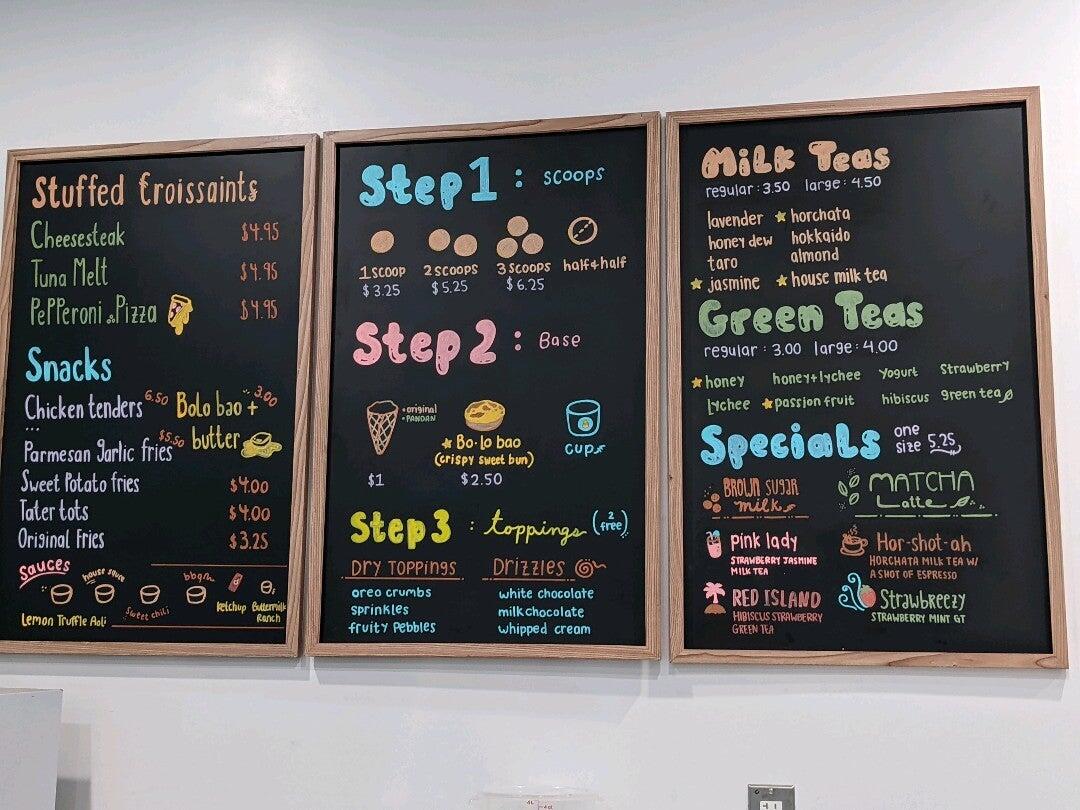 Stuffed Croissaints
Cheesesteak $4.95
Tuna Melt $4.95
Pepperoni Pizza $4.95
Snacks
Chicken tenders 6.50
...
Bolo bao + butter 3.00
Parmesan garlic fries $5.50
Sweet Potato fries $4.00
Tater tots $4.00
Original fries $3.25
Sauces
house sauce
bbq
Lemon Truffle Aoli
Sweet chili
ketchup
Buttermilk Ranch
Step 1 : scoops
1 scoop 2 scoops 3 scoops half+half
$3.25 $5.25 $6.25
Step 2 : Base
• original
• PANDAN
Bo·lo bao
(crispy sweet bun)
cup
$1 $2.50
Step 3 : toppings (2 free)
Dry Toppings
oreo crumbs
sprinkles
fruity Pebbles
Drizzles
white chocolate
milk chocolate
whipped cream
Milk Teas
regular : 3.50 large : 4.50
lavender horchata
honey dew hokkaido
taro almond
jasmine house milk tea
Green Teas
regular : 3.00 large : 4.00
honey honey+lychee Yogurt Strawberry
lychee passion fruit hibiscus green tea
Specials one size 5.25
Brown sugar milk
MATCHA Latte
pink lady
STRAWBERRY JASMINE
MILK TEA
Hor-shot-ah
HORCHATA MILK TEA W/
A SHOT OF ESPRESSO
RED ISLAND
HIBISCUS STRAWBERRY
GREEN TEA
Strawbreezy
STRAWBERRY MINT GT